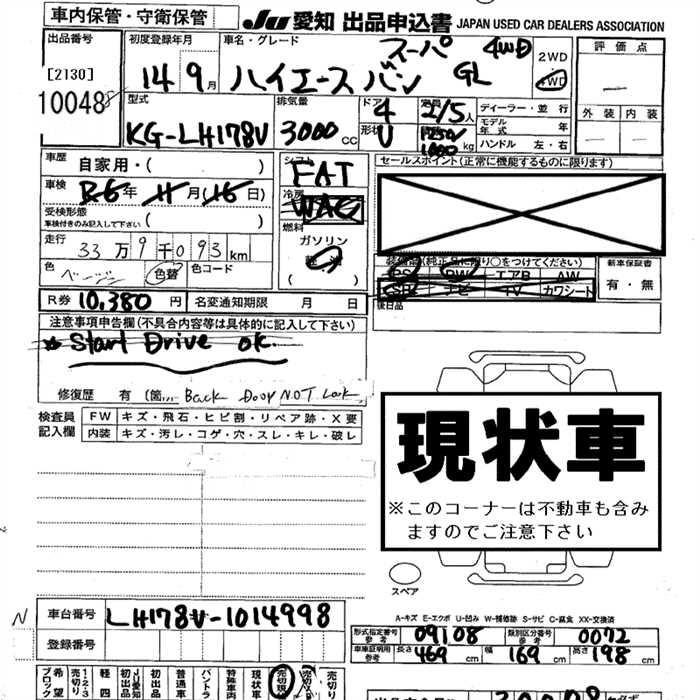 車内保管・守衛保管
JU 愛知 出品申込書 JAPAN USED CAR DEALERS ASSOCIATION
出品番号
[2130]
10048
初度登録年月
14 9月
車名・グレード
ハイエース バン スーパー GL 4WD
2WD
4WD
評価点
外装 内装
型式
KG-LH178V
排気量
3000cc
ドア
4
形状
V
定員
2/5人
1250/
1000kg
ディーラー・並行
モデル年式 年
ハンドル 左・右
車歴
自家用・( )
車検
R6年 11月(16日)
受検形態
車検付きのみ記入して下さい ( )
走行
33万9千093km
色
ベージュ
色替
色コード
シフト
FAT
冷房
WAC
燃料
ガソリン
軽油
( )
セールスポイント(正常に機能するものに限ります)
装備品(純正品に限り○をつけてください)
PS PW エアB AW
SR ナビ TV カワシート
後日品
新車保証書
有・無
R券 10,380円
名変通知期限 月 日
注意事項申告欄(不具合内容等は具体的に記入して下さい)
Start Drive ok.
修復歴 有 (箇 Back Door NOT Lock
検査員記入欄
FW キズ・飛石・ヒビ割・リペア跡・X要
内装 キズ・汚レ・コゲ・穴・スレ・キレ・破レ
現状車
※このコーナーは不動車も含み
ますのでご注意下さい
スペア
A-キズ E-エクボ U-凹み W-補修跡 S-サビ C-腐食 XX-交換済
N
車台番号 LH178V-1014998
登録番号
形式指定番号 参考 09108
類別区分番号 参考 0072
車庫証明用 参考 長さ 469cm 幅 169cm 高さ 198cm
希望ブロック
1・2・3売切り
JU愛知初出品
軽四初出品
普通車
バントラ
特殊車両
現状車
売切現
売切り